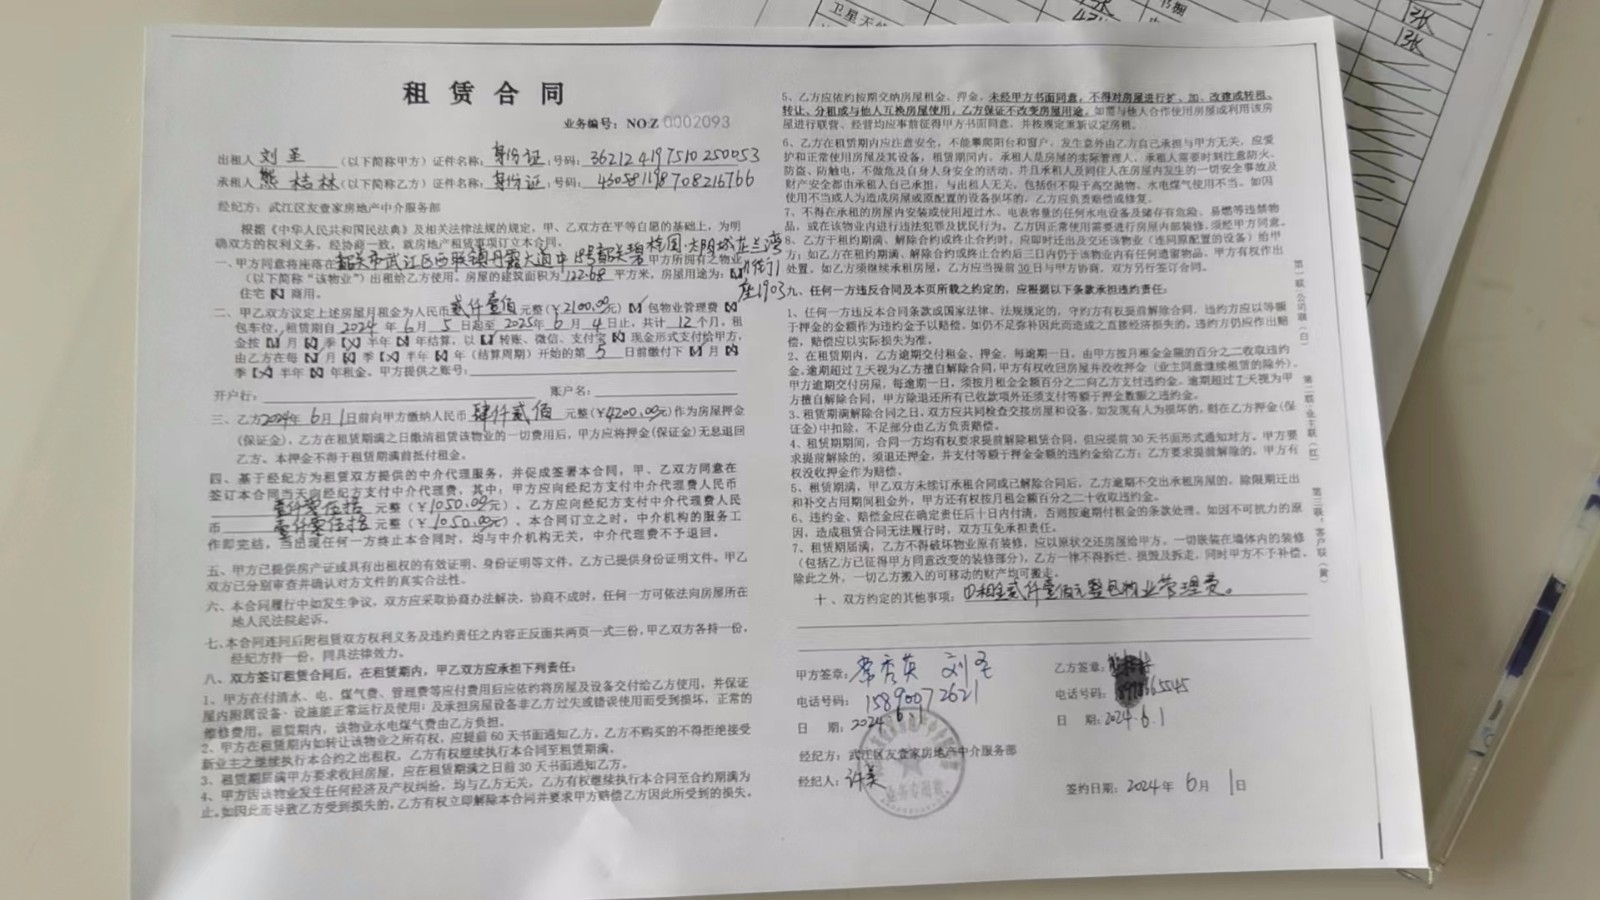 卫星天
书橱
1张
1张
租赁合同
业务编号：NO:Z 0002093
出租人 刘圣 （以下简称甲方）证件名称：身份证；号码：362124197510250053
承租人 熊桂林（以下简称乙方）证件名称：身份证；号码：430581198708216766
经纪方：武江区友壹家房地产中介服务部
根据《中华人民共和国民法典》及相关法律法规的规定，甲、乙双方在平等自愿的基础上，为明
确双方的权利义务，经协商一致，就房地产租赁事项订立本合同。
一、甲方同意将座落在韶关市武江区西联镇丹霞大道中18号韶关碧桂园·太阳城芷兰湾
甲方所拥有之物业
座1903
（以下简称“该物业”）出租给乙方使用。房屋的建筑面积为122.68平方米，房屋用途为：
住宅 商用。
二、甲乙双方议定上述房屋月租金为人民币贰仟壹佰元整（￥2100.00元） 包物业管理费
包车位，租赁期自2024年6月5日起至2025年6月4日止，共计12个月。租
金按 月 季 半年 年结算，以 转账、微信、支付宝 现金形式支付给甲方，
由乙方在每 月 季 半年 年（结算周期）开始的第5日前缴付下 月
季 半年 年租金。甲方提供之账号：
开户行： 账户名：
三、乙方2024年6月1日前向甲方缴纳人民币肆仟贰佰元整（￥4200.00元）作为房屋押金
（保证金），乙方在租赁期满之日缴清租赁该物业的一切费用后，甲方应将押金（保证金）无息退回
乙方。本押金不得于租赁期满前抵付租金。
四、基于经纪方为租赁双方提供的中介代理服务，并促成签署本合同，甲、乙双方同意在
签订本合同当天向经纪方支付中介代理费，其中：甲方应向经纪方支付中介代理费人民币
壹仟零伍拾元整（￥1050.00元）、乙方应向经纪方支付中介代理费人民
币壹仟零伍拾元整（￥1050.00元）、本合同订立之时，中介机构的服务工
作即完结，当出现任何一方终止本合同时，均与中介机构无关，中介代理费不予退回。
五、甲方已提供房产证或具有出租权的有效证明、身份证明等文件，乙方已提供身份证明文件，甲乙
双方已分别审查并确认对方文件的真实合法性。
六、本合同履行中如发生争议，双方应采取协商办法解决，协商不成时，任何一方可依法向房屋所在
地人民法院起诉。
七、本合同连同后附租赁双方权利义务及违约责任之内容正反面共两页一式三份，甲乙双方各持一份，
经纪方持一份，同具法律效力。
八、双方签订租赁合同后，在租赁期内，甲乙双方应承担下列责任：
1、甲方在付清水、电、煤气费、管理费等应付费用后应依约将房屋及设备交付给乙方使用，并保证
屋内附属设备、设施能正常运行及使用；及承担房屋设备非乙方过失或错误使用而受到损坏，正常的
维修费用。租赁期内，该物业水电煤气费由乙方负担。
2、甲方在租赁期内如转让该物业之所有权，应提前60天书面通知乙方，乙方不购买的不得拒绝接受
新业主之继续执行本合约之出租权，乙方有权继续执行本合同至租赁期满。
3、租赁期届满甲方要求收回房屋，应在租赁期满之日前30天书面通知乙方。
4、甲方因该物业发生任何经济及产权纠纷，均与乙方无关，乙方有权继续执行本合同至合约期满为
止。如因此而导致乙方受到损失的，乙方有权立即解除本合同并要求甲方赔偿乙方因此所受到的损失。
5、乙方应依约按期交纳房屋租金、押金，未经甲方书面同意，不得对房屋进行扩、加、改建或转租、
转让、分租或与他人互换房屋使用，乙方保证不改变房屋用途，如需与他人合作使用房屋或利用该房
屋进行联营、经营均应事前征得甲方书面同意，并按规定重新议定房租。
6、乙方在租赁期内应注意安全，不能攀爬阳台和窗户，发生意外由乙方自己承担与甲方无关，应爱
护和正常使用房屋及其设备，租赁期间内，承租人是房屋的实际管理人，承租人需要时刻注意防火、
防盗、防触电，不做危及自身人身安全的活动，并且承租人及同住人在房屋内发生的一切安全事故及
财产安全都由承租人自己承担，与出租人无关，包括但不限于高空抛物、水电煤气使用不当。如因
使用不当或人为造成房屋或原配置的设备损坏的，乙方应负责赔偿或修复。
7、不得在承租的房屋内安装或使用超过水、电表容量的任何水电设备及储存有危险、易燃等违禁物
品，或在该物业内进行违法犯罪及扰民行为，乙方因正常使用需要进行房屋内部装修，须经甲方同意。
8、乙方于租约期满、解除合约或终止合约时，应即时迁出及交还该物业（连同原配置的设备）给甲
方；如乙方在租约期满、解除合约或终止合约后三日内仍于该物业内有任何遗留物品，甲方有权作出
处置。如乙方须继续承租房屋，乙方应当提前30日与甲方协商，双方另行签订合同。
九、任何一方违反合同及本页所载之约定的，应根据以下条款承担违约责任：
1、任何一方违反本合同条款或国家法律、法规规定的，守约方有权提前解除合同，违约方应以等额
于押金的金额作为违约金予以赔偿，如仍不足弥补因此而造成之直接经济损失的，违约方仍应作出赔
偿，赔偿应以实际损失为准。
2、在租赁期内，乙方逾期交付租金、押金，每逾期一日，由甲方按月租金金额的百分之二收取违约
金。逾期超过7天视为乙方擅自解除合同，甲方有权收回房屋并没收押金（业主同意继续租赁的除外）。
甲方逾期交付房屋，每逾期一日，须按月租金金额百分之二向乙方支付违约金。逾期超过7天视为甲
方擅自解除合同，甲方除退还所有已收款项外还须支付等额于押金数额之违约金。
3、租赁期满解除合同之日，双方应共同检查交接房屋和设备，如发现有人为损坏的，则在乙方押金（保
证金）中扣除，不足部分由乙方负责赔偿。
4、租赁期期间，合同一方均有权要求提前解除租赁合同，但应提前30天书面形式通知对方。甲方要
求提前解除的，须退还押金，并支付等额于押金金额的违约金给乙方；乙方要求提前解除的，甲方有
权没收押金作为赔偿。
5、租赁期满，甲乙双方未续订承租合同或已解除合同后，乙方逾期不交出承租房屋的，除限期迁出
和补交占用期间租金外，甲方还有权按月租金额百分之二十收取违约金。
6、违约金、赔偿金应在确定责任后十日内付清，否则按逾期付租金的条款处理。如因不可抗力的原
因，造成租赁合同无法履行时，双方互免承担责任。
7、租赁期届满，乙方不得破坏物业原有装修，应以原状交还房屋给甲方。一切嵌装在墙体内的装修
（包括乙方已征得甲方同意改变的装修部分），乙方一律不得拆烂、损毁及拆走，同时甲方不予补偿。
除此之外，一切乙方搬入的可移动的财产均可搬走。
十、双方约定的其他事项：①租金贰仟壹佰元整包物业管理费。
甲方签章：常秀英 刘圣
电话号码：15890072621
日 期：2024.6.1
乙方签章：
电话号码：
日 期：2024.6.1
经纪方：武江区友壹家房地产中介服务部
经纪人：许美
业务专用章
签约日期：2024年6月1日
第一联：公司联（白）
第二联：业主联（红）
第三联：客户联（黄）